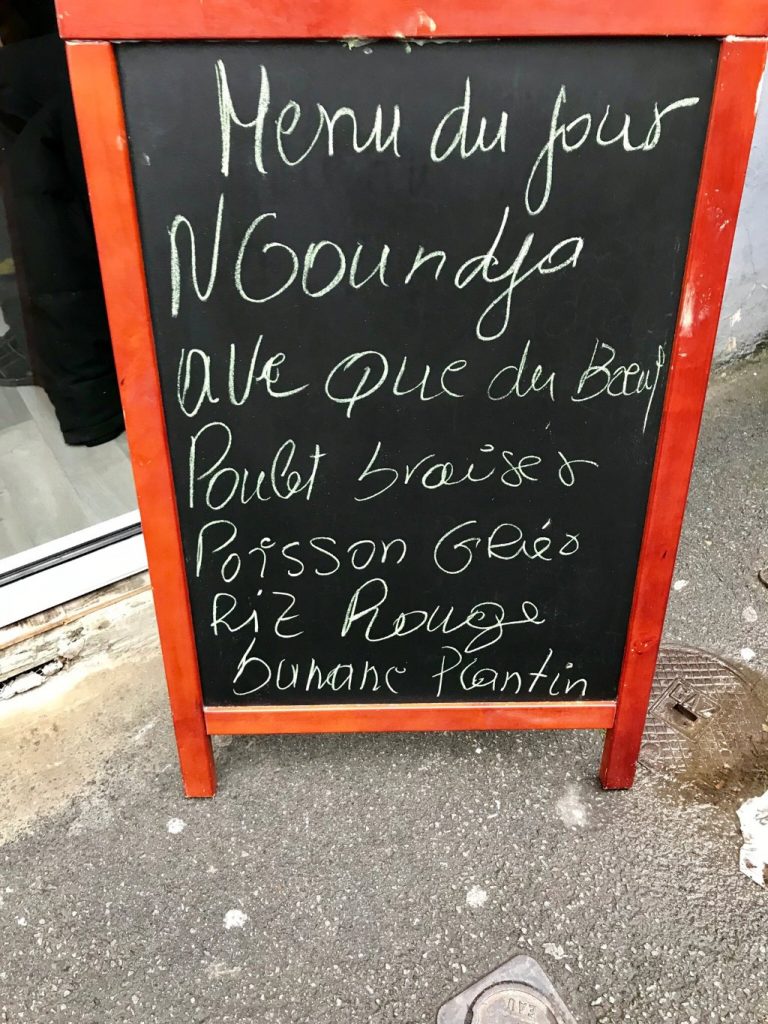 Menu du jour
NGoundja
ave Que du Bœuf
Poulet braiser
Poisson Gliér
Riz Rouge
bunane Plantin
EAU